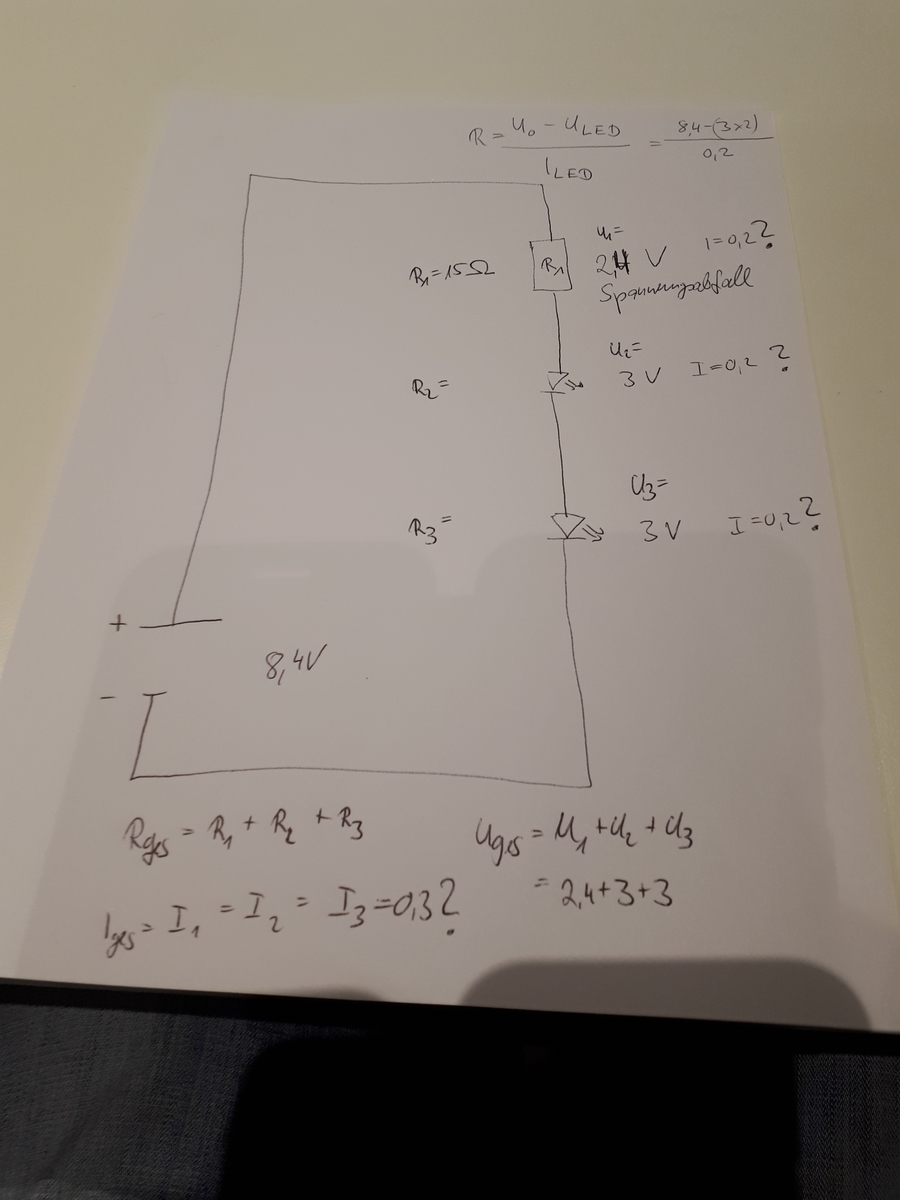 R = U₀ - U LED / I LED = 8,4-(3×2) / 0,2
R₁=15Ω
R₁
U₁=
2,4 V
I=0,2?
Spannungsabfall
R₂=
U₂=
3 V
I=0,2?
R₃=
U₃=
3 V
I=0,2?
+
-
8,4V
Rges = R₁ + R₂ + R₃
Uges = U₁+U₂+U₃
= 2,4+3+3
Iges= I₁ = I₂ = I₃=0,3?